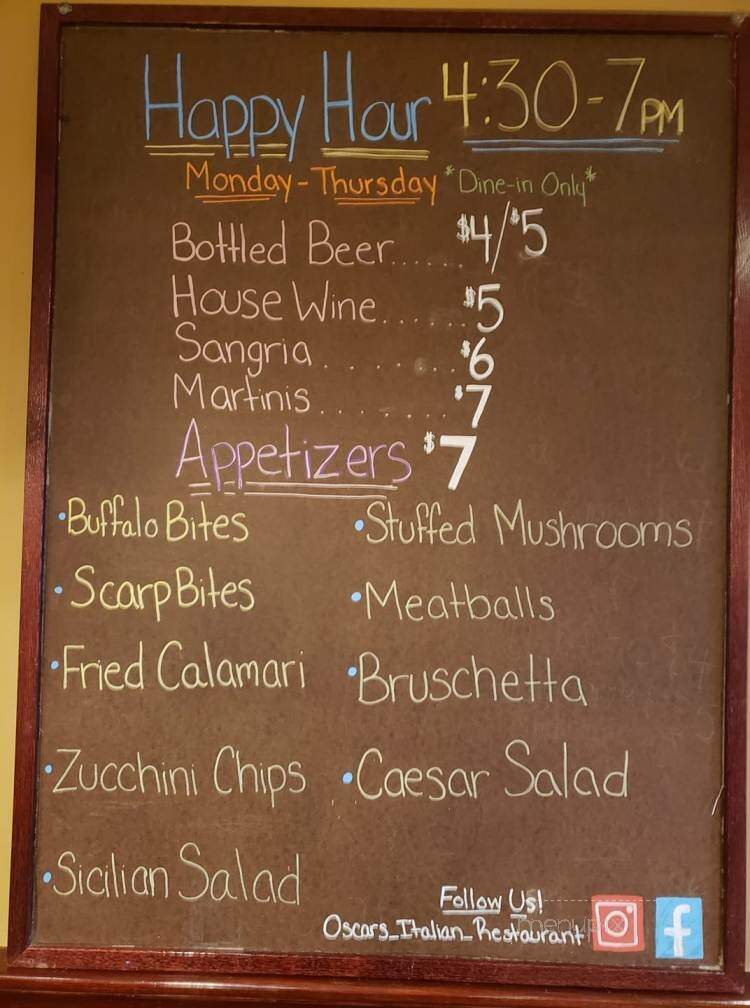 Happy Hour 4:30-7PM
Monday-Thursday *Dine-in Only*
Bottled Beer...... $4/$5
House Wine...... $5
Sangria......... $6
Martinis........ $7
Appetizers $7
•Buffalo Bites
•Stuffed Mushrooms
•Scarp Bites
•Meatballs
•Fried Calamari
•Bruschetta
•Zucchini Chips
•Caesar Salad
•Sicilian Salad
Follow Us!
Oscars_Italian_Restaurant
f